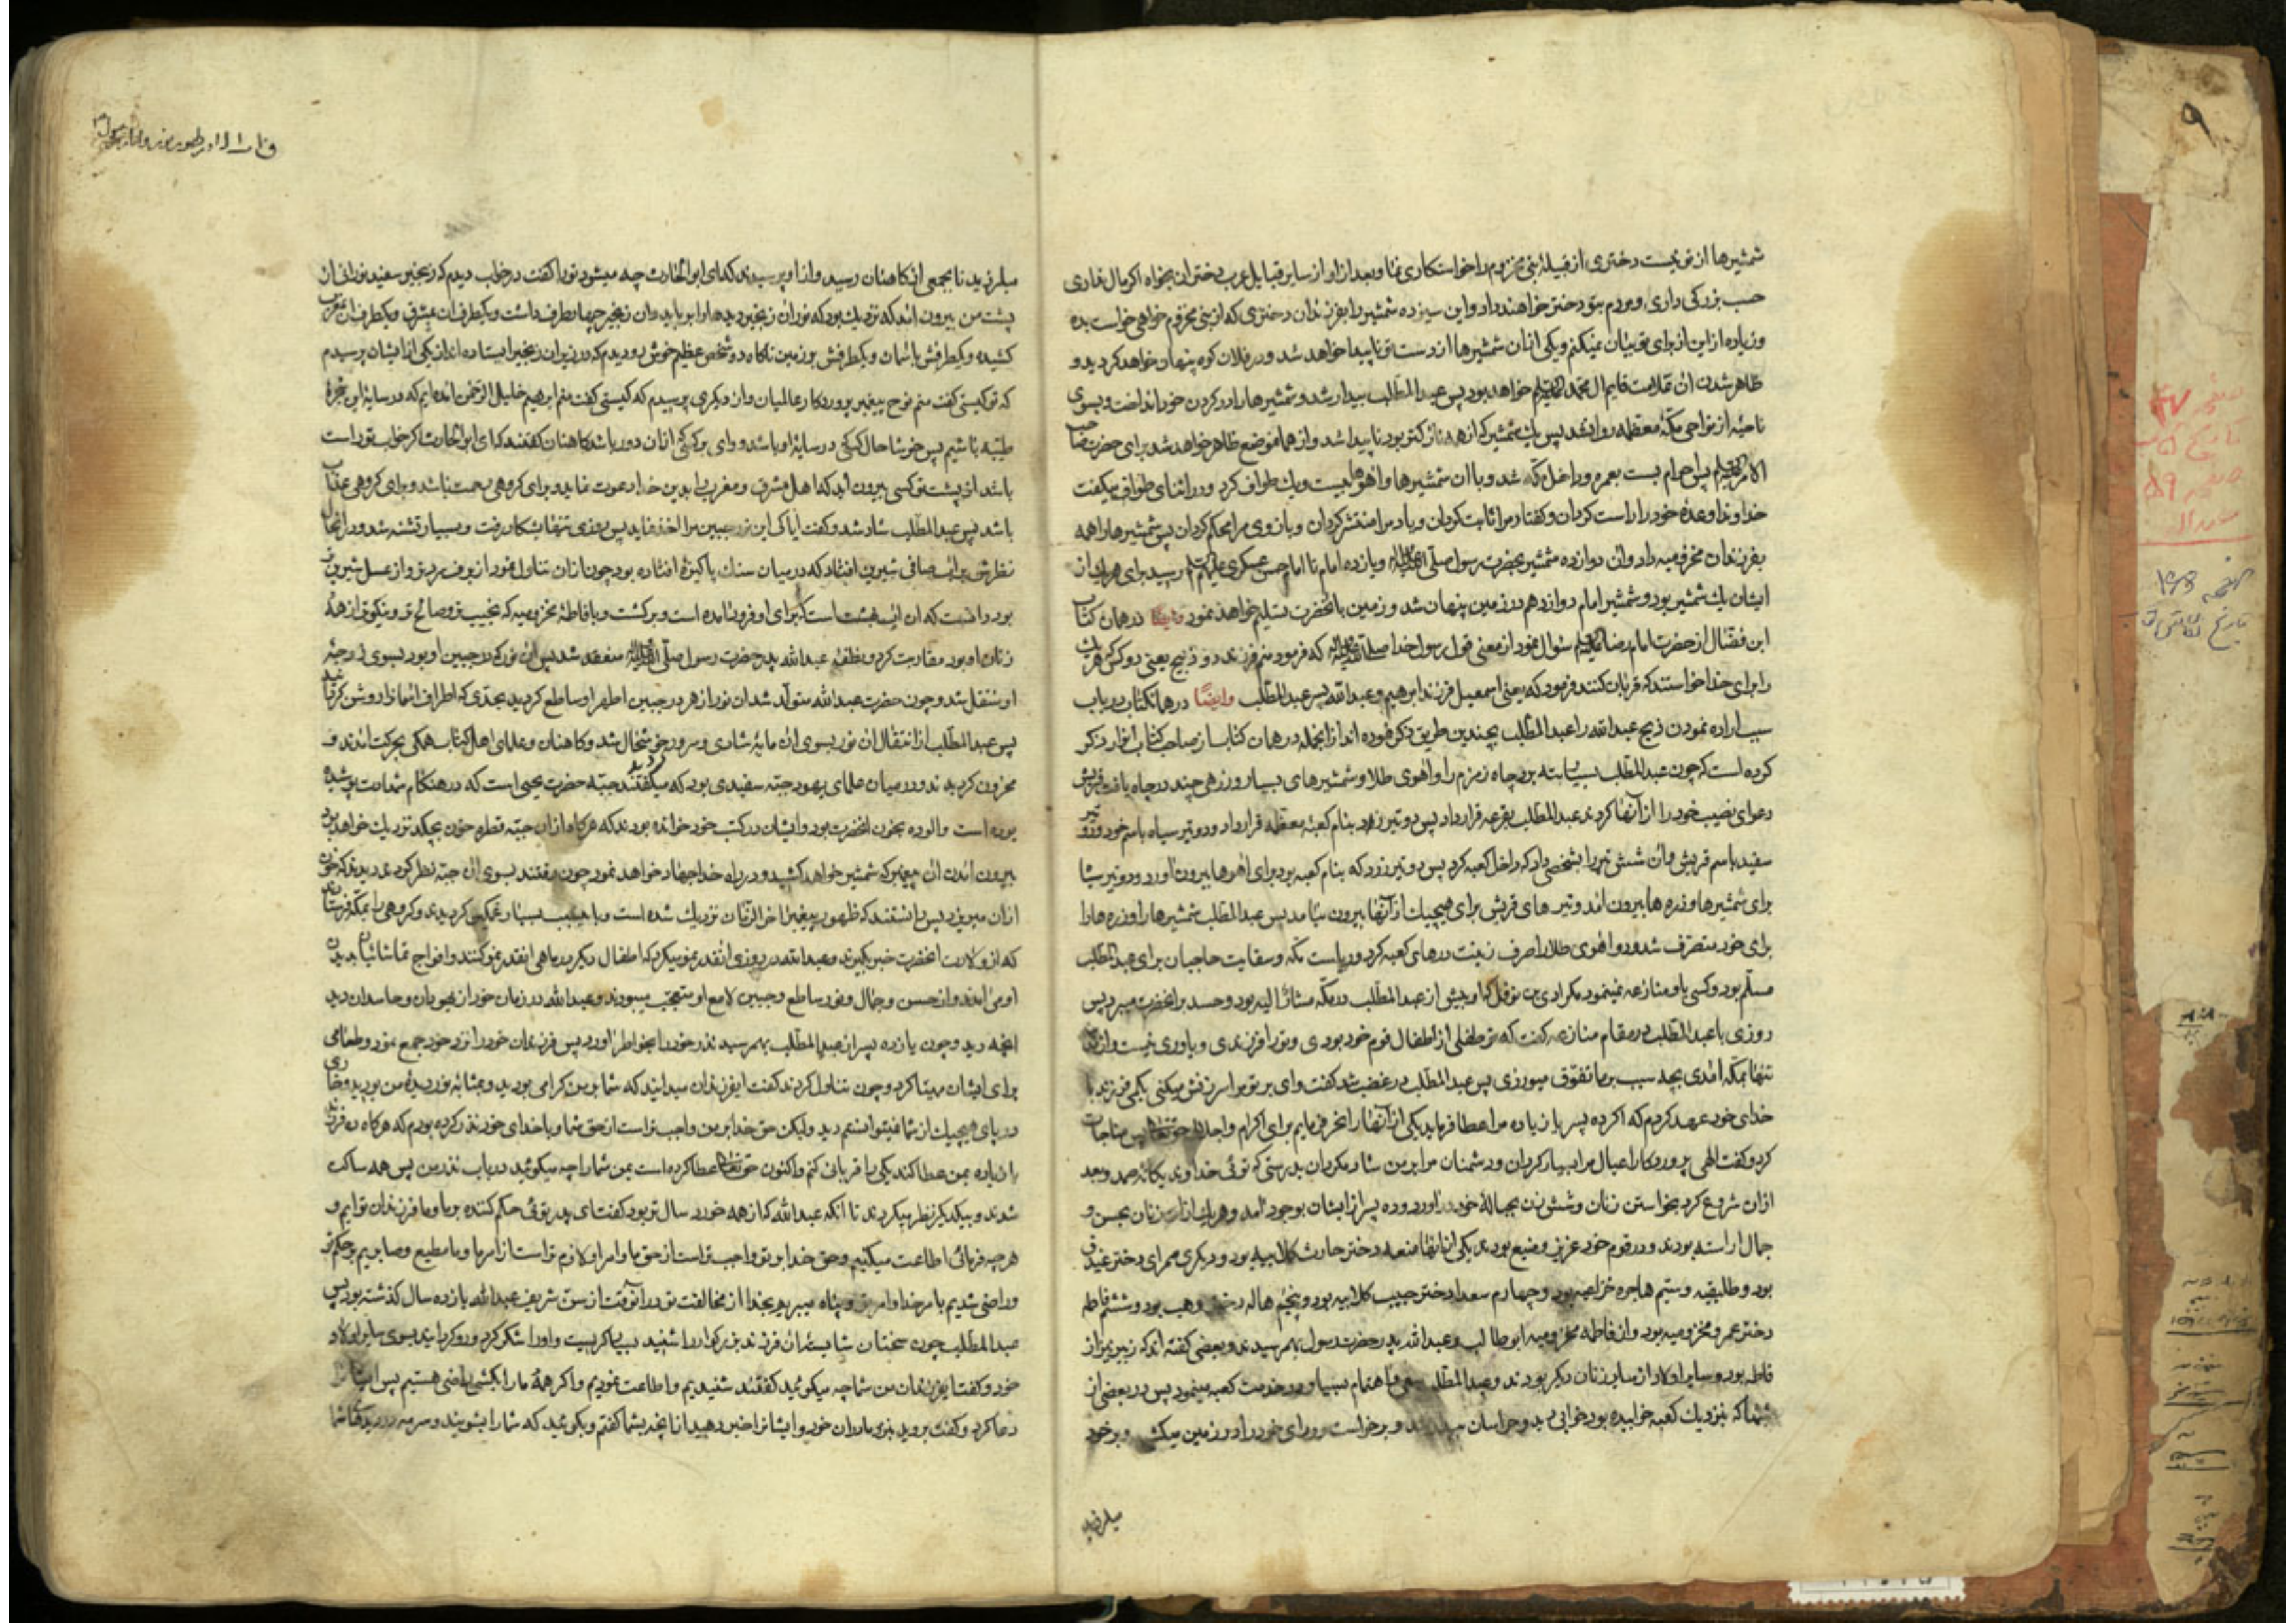 شمشیرها از تو نیست دختری از قبیلهٔ بنی مخزوم را خواستکاری نما و بعد از او از سایر قبایل عرب دختران بخواه اکر مال نداری
حسب بزرکی داری و مردم بتو دختر خواهند داد و این سیزده شمشیر را بفرزندان دختری که از بنی مخزوم خواهی خواست بده
و زیاده از این از برای تو بیان نمیکنم و یکی از ان شمشیرها از دست تو ناپیدا خواهد شد و در فلان کوه پنهان خواهد کردید و
ظاهر شدن ان علامت قایم ال محمد خواهد بود پس عبد المطلب بیدار شد و شمشیرها را در کردن خود انداخت و بسوی
ناحیهٔ از نواحی مکهٔ معظمه روان شد پس یک شمشیر که از همه نازکتر بود ناپیدا شد و از همان موضع ظاهر خواهد شد برای حضرت صاحب
الامر پس احرام بست بعمره و داخل مکه شد و با ان شمشیرها و اهوها بیست و یک طواف کرد و در اثنای طواف میکفت
خداوندا وعدهٔ خود را راست کردان و کفتار مرا ثابت کردان و یاد مرا منتشر کردان و بازوی مرا محکم کردان پس شمشیرها را همه
بفرزندان مخزومیه داد و ان دوازده شمشیر بحضرت رسول صلی الله علیه و اله و یازده امام تا امام حسن عسکری علیهم رسید برای هر یک از
ایشان یک شمشیر بود و شمشیر امام دوازدهم در زمین پنهان شد و زمین بانحضرت تسلیم خواهد نمود وایضًا در همان کتاب
ابن فضال از حضرت امام رضا سؤال نمود از معنی قول رسول خدا که فرمود منم فرزند دو ذبیح یعنی دو کس که هر یک
را برای خدا خواستند که قربان کنند فرمود که یعنی اسمعیل فرزند ابرهیم و عبد الله پسر عبد المطلب وایضًا در همان کتاب در باب
سبب اراده نمودن ذبح عبد الله را عبد المطلب بچندین طریق ذکر نموده اند از انجمله در همان کتاب از صاحب کتاب انوار ذکر
کرده است که چون عبد المطلب چاه زمزم را و اهوی طلا و شمشیرهای بسیار و زرهی چند در چاه یافت قریش
دعوای نصیب خود را از انها کردند عبد المطلب بقرعه قرار داد پس دو تیر زرد بنام کعبهٔ معظمه قرار داد و دو تیر سیاه باسم خود و دو تیر
سفید باسم قریش و ان شش تیر را بشخصی داد که داخل کعبه کرد پس دو تیر زرد که بنام کعبه بود برای اهوها بیرون اورد و دو تیر سیاه
برای شمشیرها و زره ها بیرون امد و تیرهای قریش برای هیچیک از انها بیرون نیامد پس عبد المطلب شمشیرها را و زره ها را
برای خود متصرف شد و دو اهوی طلا را صرف زینت درهای کعبه کرد و ریاست مکه و سقایت حاجیان برای عبد المطلب
مسلم بود و کسی با او منازعه نمینمود مکر عدی بن نوفل که او پیش از عبد المطلب در مکه مشار الیه بود و حسد بر انحضرت میبرد پس
روزی با عبد المطلب در مقام منازعه کفت که تو طفلی از اطفال قوم خود بودی و تو را فرزندی و یاوری نیست و از
تنها بمکه امدی بچه سبب بر ما تفوق میورزی پس عبد المطلب در غضب شد کفت وای بر تو مرا سرزنش میکنی بکمی فرزند با
خدای خود عهد کردم که اکر ده پسر یا زیاده مرا عطا فرماید یکی از انها را نحر نمایم برای اکرام و اجلال حق تعالی پس مناجات
کرد و کفت الهی پروردکارا عیال مرا بسیار کردان و دشمنان مرا بر من شاد مکردان بدرستی که توئی خداوند یکانهٔ صمد و بعد
ازان شروع کرد بخواستن زنان و شش زن بحبالهٔ خود در اورد و ده پسر از ایشان بوجود امد و هر یک از ان زنان بحسن و
جمال اراسته بودند و در قوم خود عزیز و منیع بودند یکی از انها منعه دختر حارث کلابیه بود و دیکری سمرای دختر غیدق
بود و طایفیه و سیم هاجره خزاعیه بود و چهارم سعدا دختر حبیب کلابیه بود و پنجم هاله دختر وهب بود و ششم فاطمه
دختر عمرو مخزومیه بود و از فاطمه مخزومیه ابو طالب و عبد الله پدر حضرت رسول بهم رسیدند و بعضی کفته اند که زبیر نیز از
فاطمه بود و سایر اولاد از سایر زنان دیکر بودند و عبد المطلب سعی و اهتمام بسیار در خدمت کعبه مینمود پس در بعضی از
شبها که نزدیک کعبه خوابیده بود خوابی دید و هراسان بیدار شد و برخواست و ردای خود را در زمین میکشید و بر خود
میلرزید
میلرزید تا بجمعی از کاهنان رسید و از او پرسیدند که ای ابو الحارث چه میشود تو را کفت در خواب دیدم که زنجیر سفید نورانی از
پشت من بیرون امد که نزدیک بود که نور ان زنجیر دیدها را برباید و ان زنجیر چهار طرف داشت و یکطرف ان بمشرق و یکطرف ان بمغرب
کشیده و یکطرفش باسمان و یکطرفش بزمین ناکاه دو شخص عظیم خوش رو دیدم که در زیر ان زنجیر ایستاده اند از یکی از ایشان پرسیدم
که تو کیستی کفت منم نوح پیغمبر پروردکار عالمیان و از دیکری پرسیدم که کیستی کفت منم ابرهیم خلیل الرحمن امده ایم که در سایهٔ این شجرهٔ
طیبه باشیم پس خوشا حال کسی که در سایهٔ او باشد و وای بر کسی که از ان دور باشد کاهنان کفتند که ای ابو الحارث اکر خواب تو راست
باشد از پشت تو کسی بیرون اید که اهل مشرق و مغرب را بدین خدا دعوت نماید و برای کروهی رحمت باشد و برای کروهی عذاب
باشد پس عبد المطلب شاد شد و کفت ایا کی این نور جبین مرا اخذ نماید پس روزی تنها بشکار رفت و بسیار تشنه شد و در انحال
نظرش بر اب صافی شیرین افتاد که در میان سنک پاکیزهٔ افتاده بود چون از ان تناول نمود از برف سردتر و از عسل شیرین تر
بود دانست که ان اب بهشت است که برای او فرود امده است و برکشت و با فاطمهٔ مخزومیه که نجیب تر و صالح تر و نیکوتر از همهٔ
زنان او بود مقاربت کرد و نطفهٔ عبد الله پدر حضرت رسول منعقد شد پس ان نور که در جبین او بود بسوی زوجهٔ
او منتقل شد و چون حضرت عبد الله متولد شد ان نور از هر در جبین اطهر او ساطع کردید بحدی که اطراف اسمان را روشن کردانید
پس عبد المطلب از انتقال ان نور بسوی ان مایهٔ شادی و سرور خوشحال شد و کاهنان و علمای اهل کتاب همکی بحرکت امدند و
محزون کردیدند و در میان علمای یهود جبه سفیدی بود که میکفتند جبهٔ حضرت یحیی است که در هنکام شهادت پوشیده
بوده است و الوده بخون انحضرت بود و ایشان در کتب خود خوانده بودند که هرکاه از ان جبه قطره خون بچکد نزدیک خواهد بود
بیرون امدن ان پیغمبر که شمشیر خواهد کشید و در راه خدا جهاد خواهد نمود چون رفتند بسوی ان جبه نظر کردند دیدند که خون
از ان میریزد پس دانستند که ظهور پیغمبر اخر الزمان نزدیک شده است و باین سبب بسیار غمکین کردیدند و کروهی را بمکه فرستادند
که از ولادت انحضرت خبر بکیرند و عبد الله در روزی انقدر نمو میکرد که اطفال دیکر در ماهی انقدر نمو کنند و افواج تماشائیان بدیدن
او می امدند و از حسن و جمال و نور ساطع و جبین لامع او متعجب میبودند و عبد الله در زمان خود از یهودان و حاسدان دید
انچه دید و چون یازده پسر از عبد المطلب بهم رسید نذر خود را بخاطر اورد پس فرزندان خود را نزد خود جمع نمود و طعامی
برای ایشان مهیا کرد و چون تناول کردند کفت ایفرزندان میدانید که شما بر من کرامی بودید و بمثابه نور دیدهٔ من بودید و خاری
در پای هیچیک از شما نمیتوانستم دید و لیکن حق خدا بر من واجب تر است از حق شما و با خدای خود نذر کرده بودم که هرکاه ده فرزند
یا زیاده بمن عطا کند یکی را قربانی کنم و اکنون حق تعالی عطا کرده است بمن شما را چه میکوئید در باب نذر من پس همه ساکت
شدند و بیکدیکر نظر میکردند تا انکه عبد الله که از همه خورد سال تر بود کفت ای پدر توئی حکم کننده بر ما و ما فرزندان توایم و
هرچه فرمائی اطاعت میکنیم و حق خدا بر تو واجب تر است از حق ما و امر او لازم تر است از امر ما و ما مطیع و صابریم بر حکم تو
و راضی شدیم بامر خدا و امر تو و پناه میبریم بخدا از مخالفت تو در انوقت از سن شریف عبد الله یازده سال کذشته بود پس
عبد المطلب چون سخنان شایستهٔ ان فرزند بزرکوار را شنید بسیار کریست و او را شکر کرد و رو کردانید بسوی سایر اولاد
خود و کفت ایفرزندان من شما چه میکوئید کفتند شنیدیم و اطاعت نمودیم و اکر همهٔ ما را بکشی راضی هستیم پس ایشان را
دعا کرد و کفت بروید بنزد مادران خود و ایشان را خبر دهید از انچه بشما کفتم و بکوئید که شما را بشویند و سرمه در دیدهای شما
۹
صفحه
تاریخ